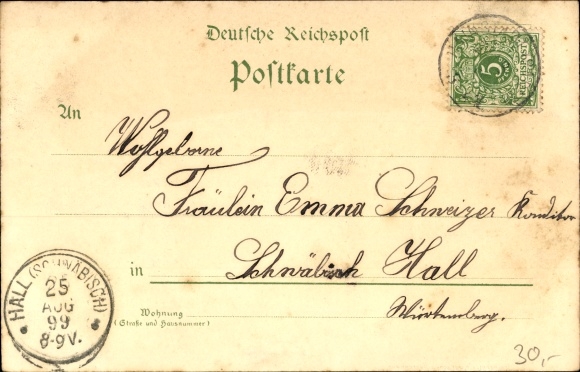 Deutsche Reichspost
Postkarte
5
REICHSPOST
An
Wohlgeborne
Fräulein Emma Schweizer Konditor
in Schwäbisch Hall
Wohnung
(Straße und Hausnummer)
Würtemberg.
HALL (SCHWÄBISCH)
25
AUG
99
8-9V.
30,-